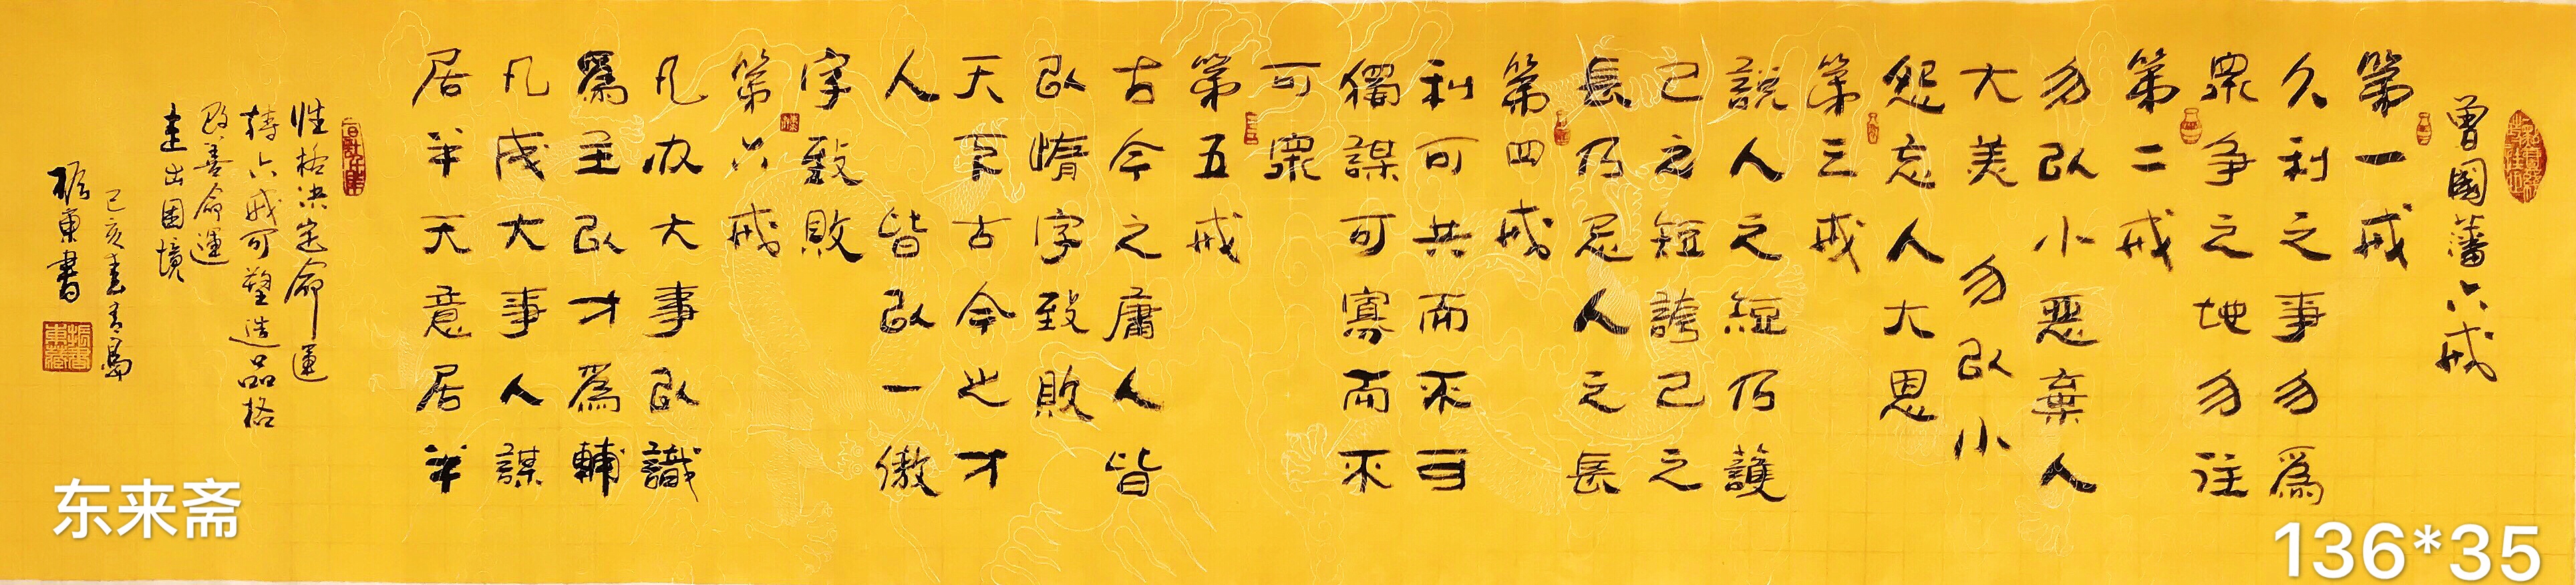 曾國藩六戒
第一戒
久利之事勿爲
眾争之地勿往
第二戒
勿以小惡棄人
大美勿以小
怨忘人大恩
第三戒
説人之短乃護
己之短誇己之
長乃忌人之長
第四戒
利可共而不可
獨謀可寡而不
可眾
第五戒
古今之庸人皆
以惰字致敗
天下古今之才
人皆以一傲
字致敗
第六戒
凡办大事以識
爲主以才爲輔
凡成大事人謀
居半天意居半
性格決定命運
六戒可塑造品格
改善命運
走出困境
己亥春青島
振東書
东来斋
136*35